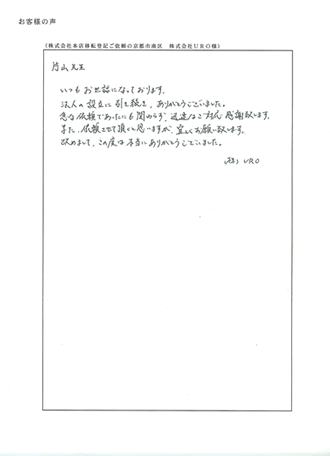 お客様の声
(株式会社本店移転登記ご依頼の京都市南区 株式会社URO様)
片山先生
いつもお世話になっております。
法人の設立に引き続き、ありがとうございました。
急な依頼であったにも関わらず、迅速なご対応感謝致します。
また、依頼させて頂くと思いますが、宜しくお願い致します。
改めまして、この度は本当にありがとうございました。
(株)URO